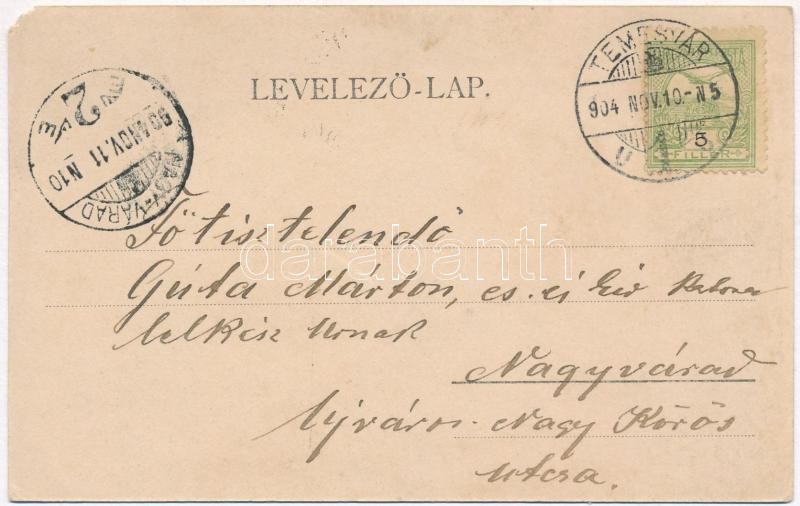 LEVELEZŐ-LAP.
TEMESVÁR
904 NOV. 10.-N 5
U
5
FILLER
NAGY-VÁRAD
904 NOV. 11 N10
2
Főtisztelendő
Gúta Márton, cs. és kir
lelkész Urnak
Nagyvárad
Ujváros Nagy Körös
utcza.
darabanth